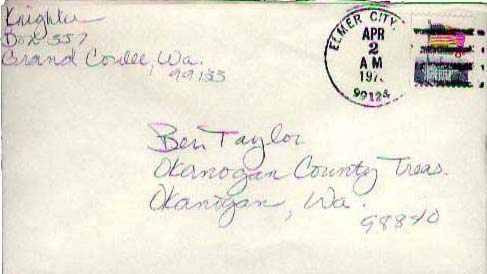 Knighten
Box 557
Grand Coulee, Wa.
99133
ELMER CITY,
APR
2
AM
197
99124
Ben Taylor
Okanogan County Treas.
Okanogan, Wa.
98840